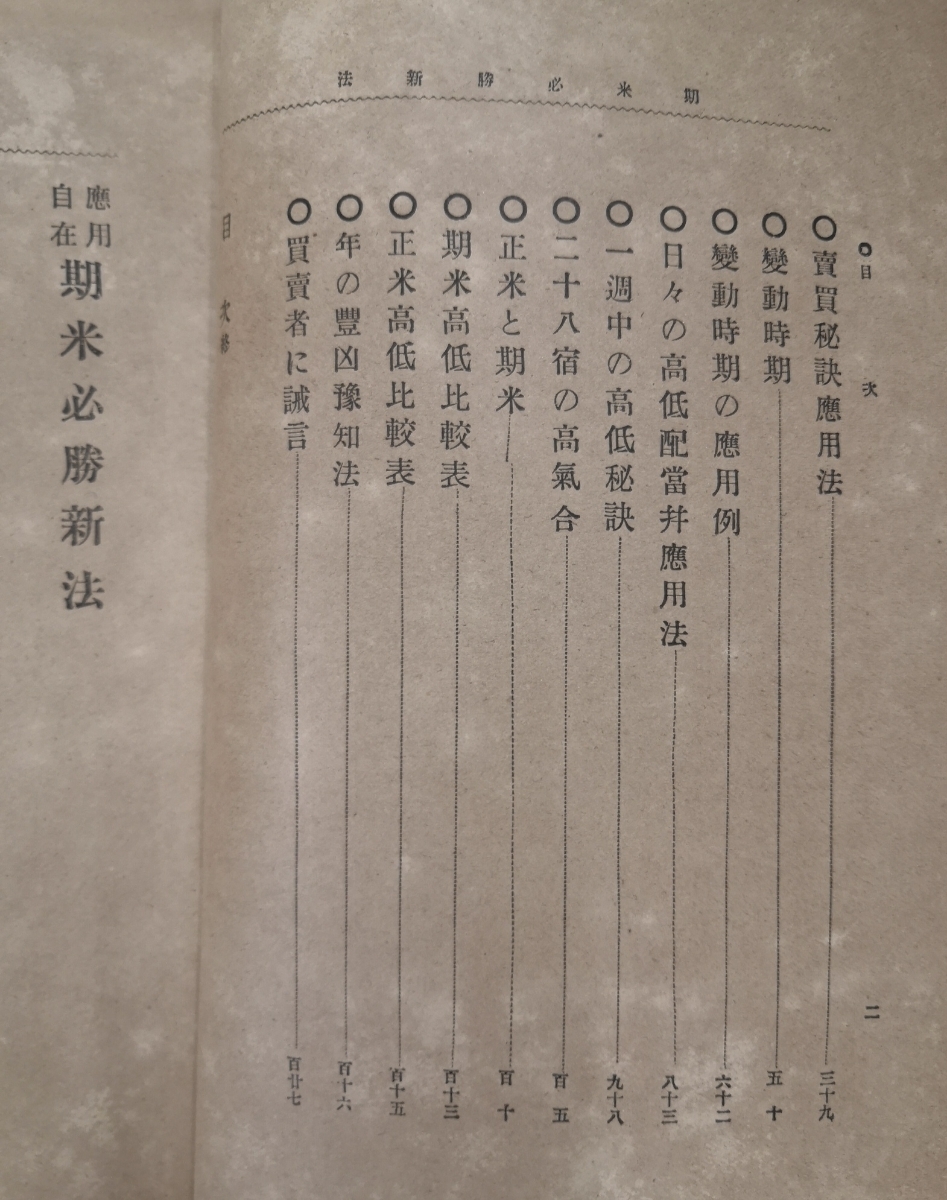 期米必勝新法
◎目次
二
○賣買秘訣應用法 三十九
○變動時期 五十
○變動時期の應用例 六十二
○日々の高低配當幷應用法 八十三
○一週中の高低秘訣 九十八
○二十八宿の高氣合 百五
○正米と期米 百十
○期米高低比較表 百十三
○正米高低比較表 百十五
○年の豐凶豫知法 百十六
○買賣者に誡言 百廿七
目次終
應用
自在
期米必勝新法